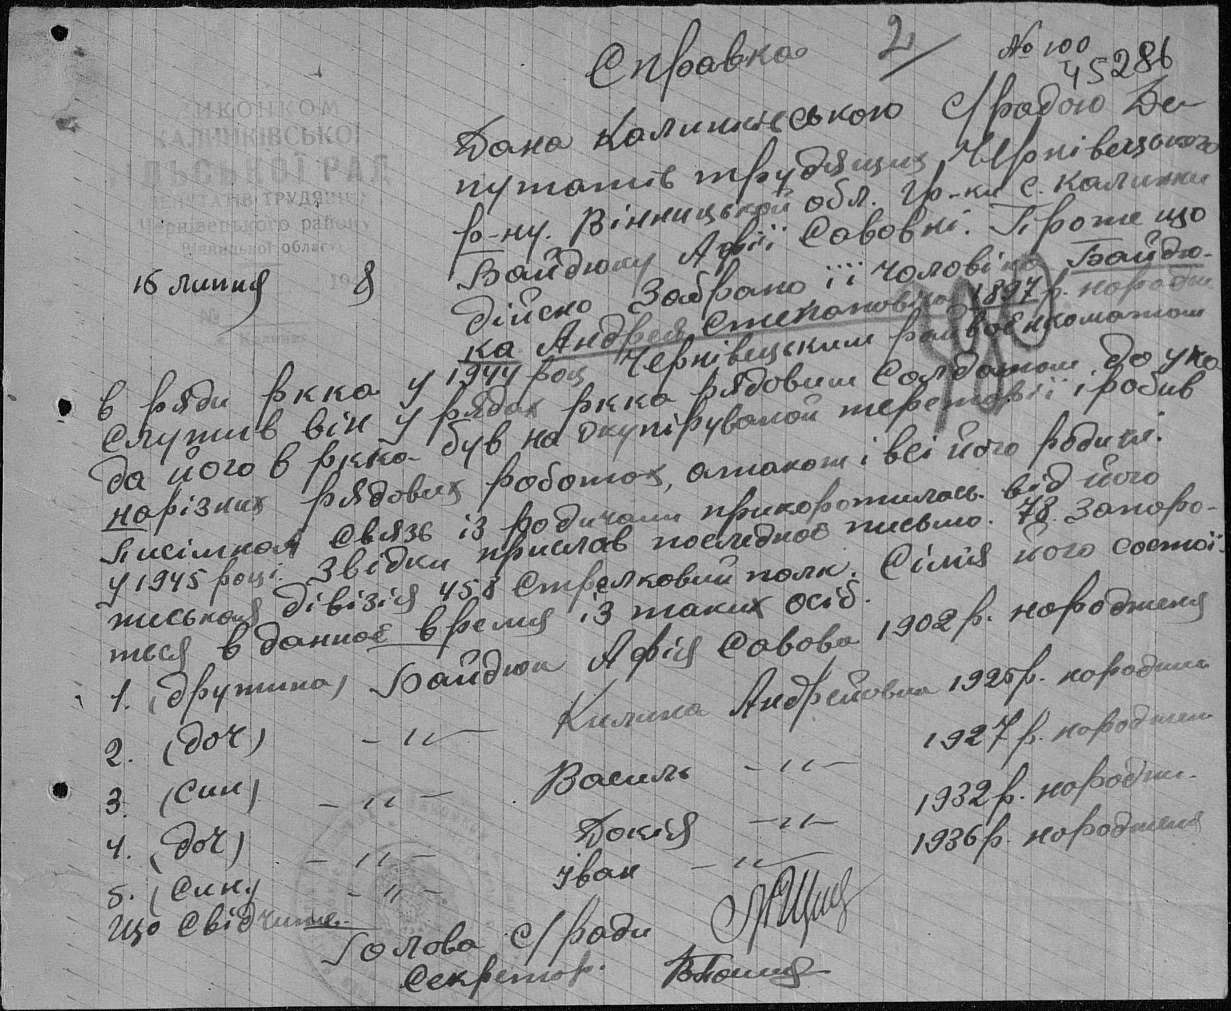 Справка 2 № 100
45286
ВИКОНКОМ
КАЛИНКІВСЬКОЇ
СІЛЬСЬКОЇ РАДИ
ДЕПУТАТІВ ТРУДЯЩИХ
Чернівецького району
Вінницької області
16 липня 194 8
№
с. Калинк
Дана Калинківською С/радою Де-
путатів трудящих, Чернівецького
р-ну. Вінницької обл. Гр-ки с. Калинки
Байдюку Афії Савовні. Проте що
дійсно забрано її чоловіка Байдю-
ка Андрея Степановіча 1897 р. народж
в ряди ркка у 1944 роц Чернівецьким райвоєнкоматом
Служив він у рядах ркка рядовим солдатом, до ухо
да його в ркка був на окупірувалой території і робив
на різних рядових роботах, атакож і всі його родичі.
Писімная связь із родичами прикоротилась від його
у 1945 році. Звідки прислав последноє письмо. 78 Запоро-
жськая дівізія 458 Стрелковий полк. Сімія його состої
ться в данноє время із таких осіб.
1. (дружина) Байдюк Афія Савова 1902 р. народженя
2. (доч) -"- Килина Андреївна 1925 р. народжень
3. (син) -"- Василь -"- 1927 р. народжен
4. (доч) -"- Докія -"- 1932 р. народжен.
5. (сину -"- Іван -"- 1936 р. народженя
Що свідчить.
Голова С/ради
Секретар.